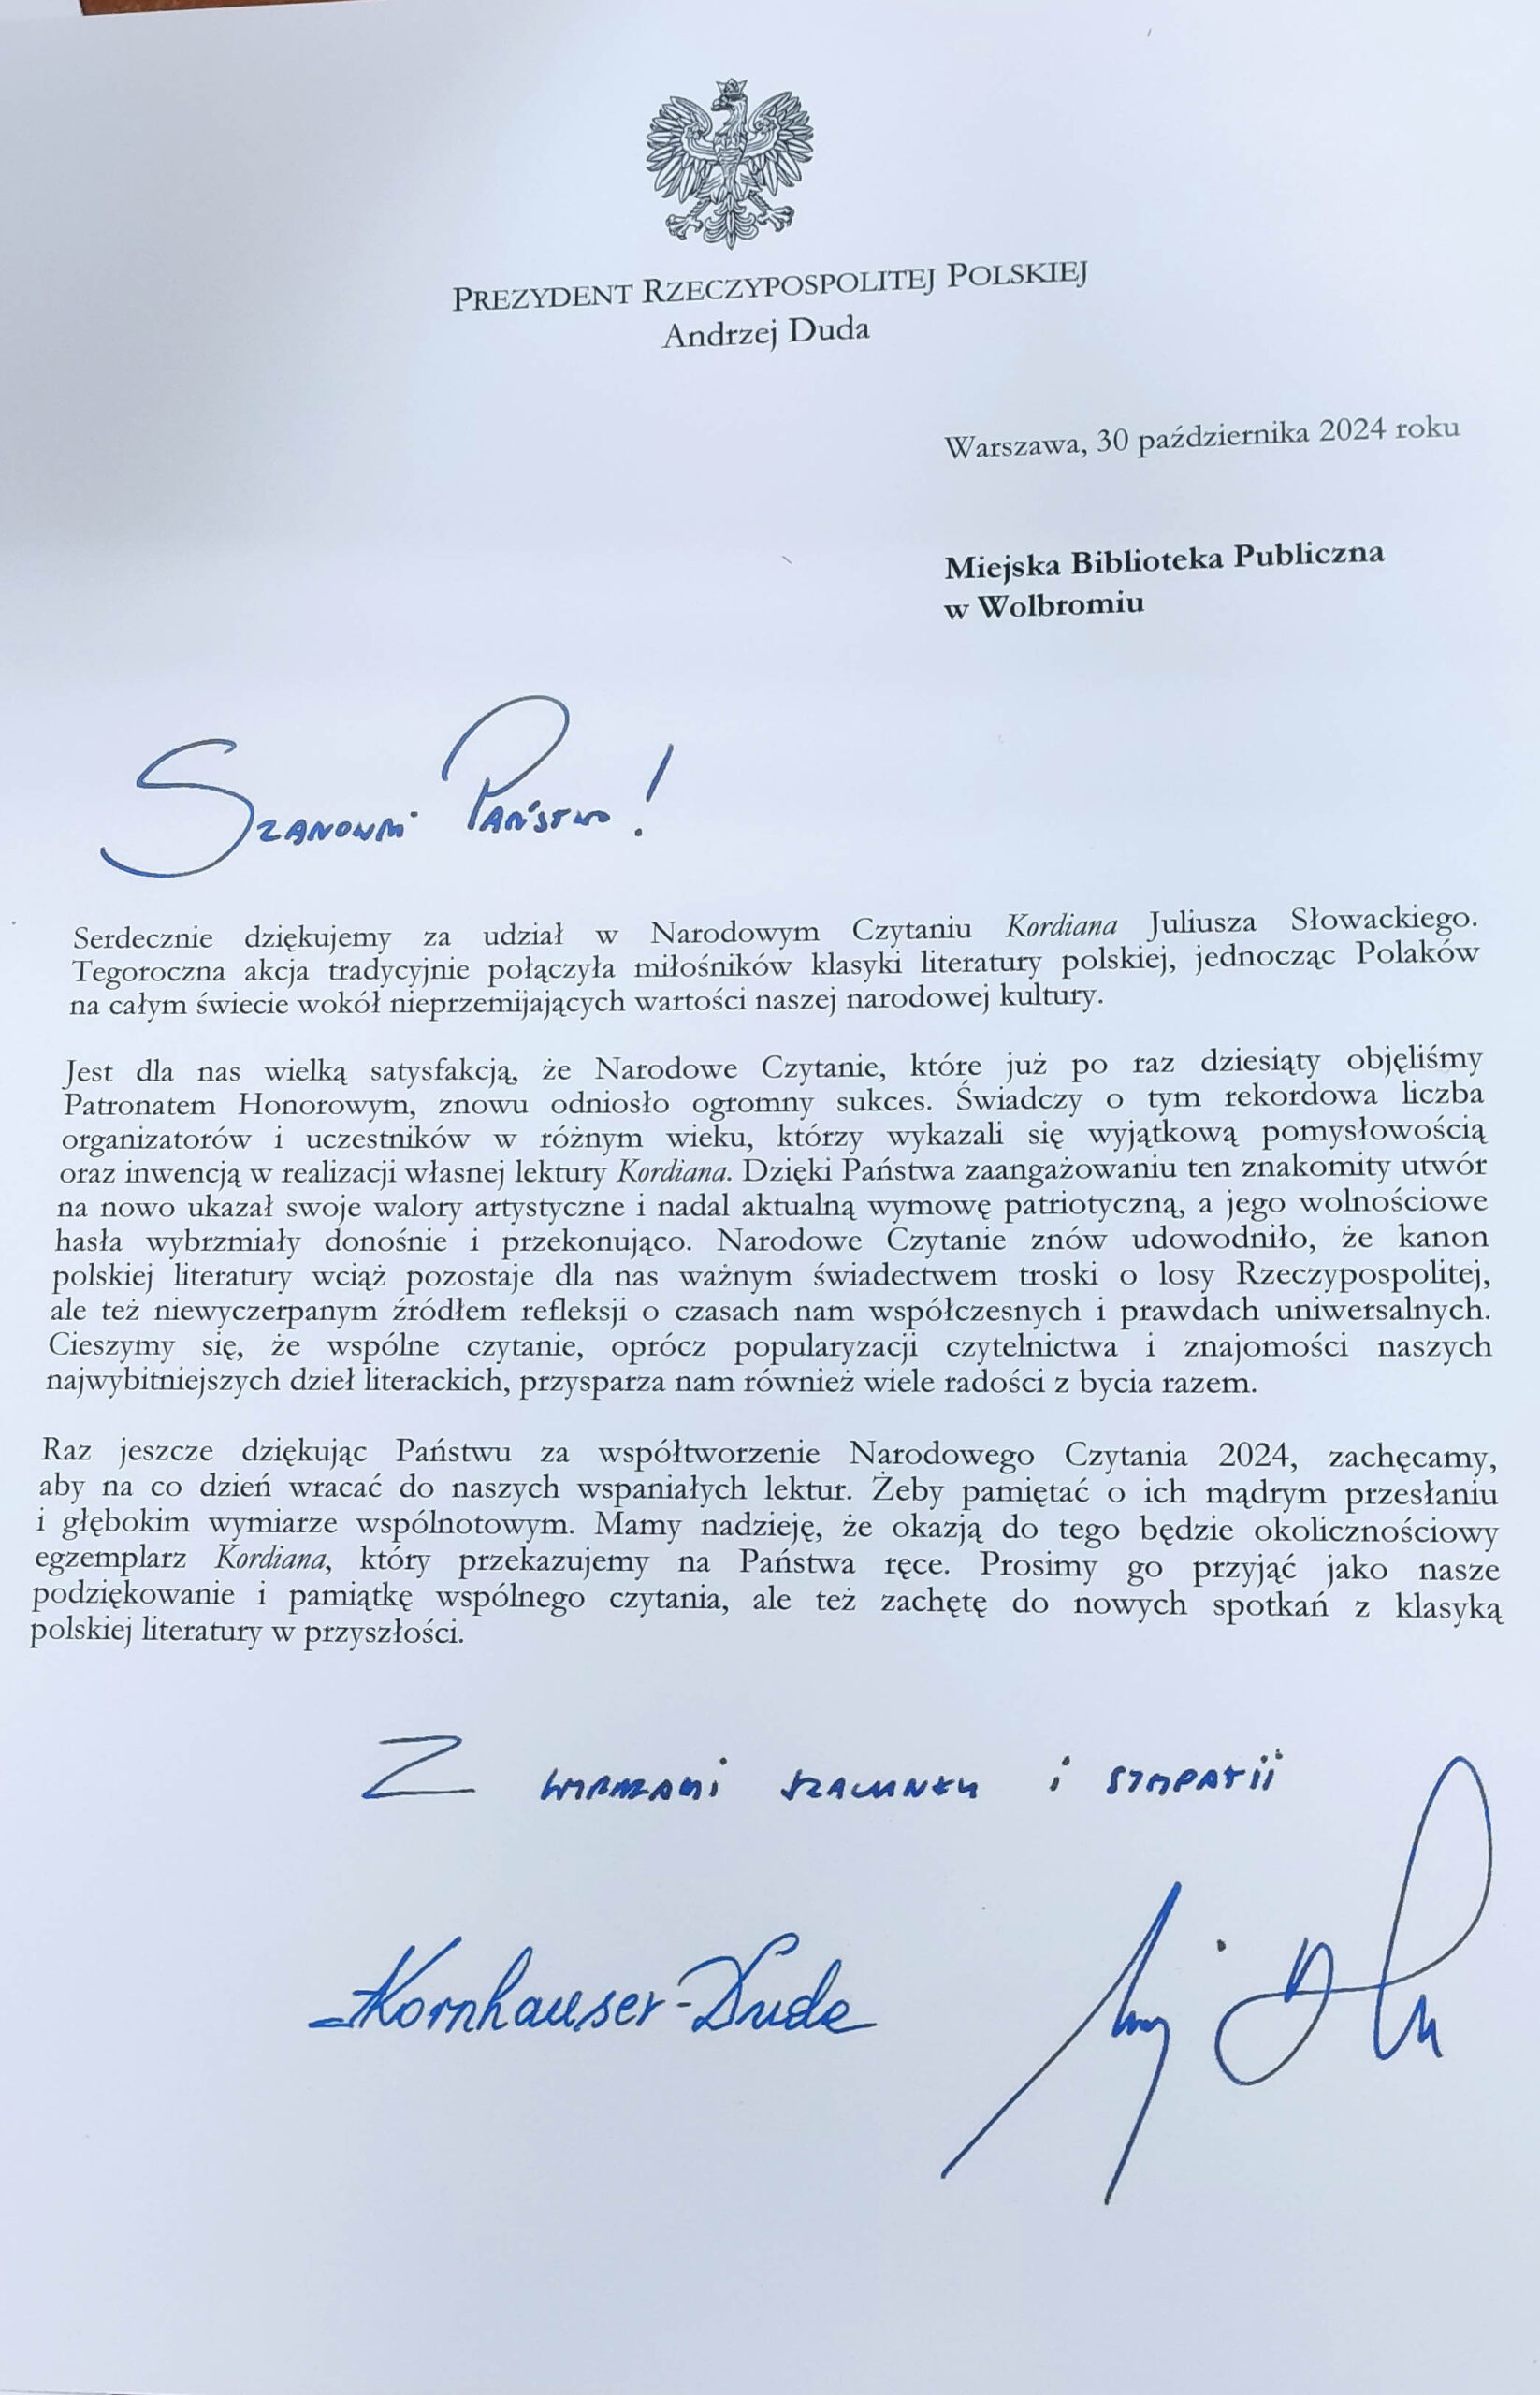 PREZYDENT RZECZYPOSPOLITEJ POLSKIEJ
Andrzej Duda
Warszawa, 30 października 2024 roku
Miejska Biblioteka Publiczna
w Wolbromiu
Szanowni Państwo!
Serdecznie dziękujemy za udział w Narodowym Czytaniu Kordiana Juliusza Słowackiego.
Tegoroczna akcja tradycyjnie połączyła miłośników klasyki literatury polskiej, jednocząc Polaków
na całym świecie wokół nieprzemijających wartości naszej narodowej kultury.
Jest dla nas wielką satysfakcją, że Narodowe Czytanie, które już po raz dziesiąty objęliśmy
Patronatem Honorowym, znowu odniosło ogromny sukces. Świadczy o tym rekordowa liczba
organizatorów i uczestników w różnym wieku, którzy wykazali się wyjątkową pomysłowością
oraz inwencją w realizacji własnej lektury Kordiana. Dzięki Państwa zaangażowaniu ten znakomity utwór
na nowo ukazał swoje walory artystyczne i nadal aktualną wymowę patriotyczną, a jego wolnościowe
hasła wybrzmiały donośnie i przekonująco. Narodowe Czytanie znów udowodniło, że kanon
polskiej literatury wciąż pozostaje dla nas ważnym świadectwem troski o losy Rzeczypospolitej,
ale też niewyczerpanym źródłem refleksji o czasach nam współczesnych i prawdach uniwersalnych.
Cieszymy się, że wspólne czytanie, oprócz popularyzacji czytelnictwa i znajomości naszych
najwybitniejszych dzieł literackich, przysparza nam również wiele radości z bycia razem.
Raz jeszcze dziękując Państwu za współtworzenie Narodowego Czytania 2024, zachęcamy,
aby na co dzień wracać do naszych wspaniałych lektur. Żeby pamiętać o ich mądrym przesłaniu
i głębokim wymiarze wspólnotowym. Mamy nadzieję, że okazją do tego będzie okolicznościowy
egzemplarz Kordiana, który przekazujemy na Państwa ręce. Prosimy go przyjąć jako nasze
podziękowanie i pamiątkę wspólnego czytania, ale też zachętę do nowych spotkań z klasyką
polskiej literatury w przyszłości.
Z wyrazami szacunku i sympatii
Kornhauser-Duda